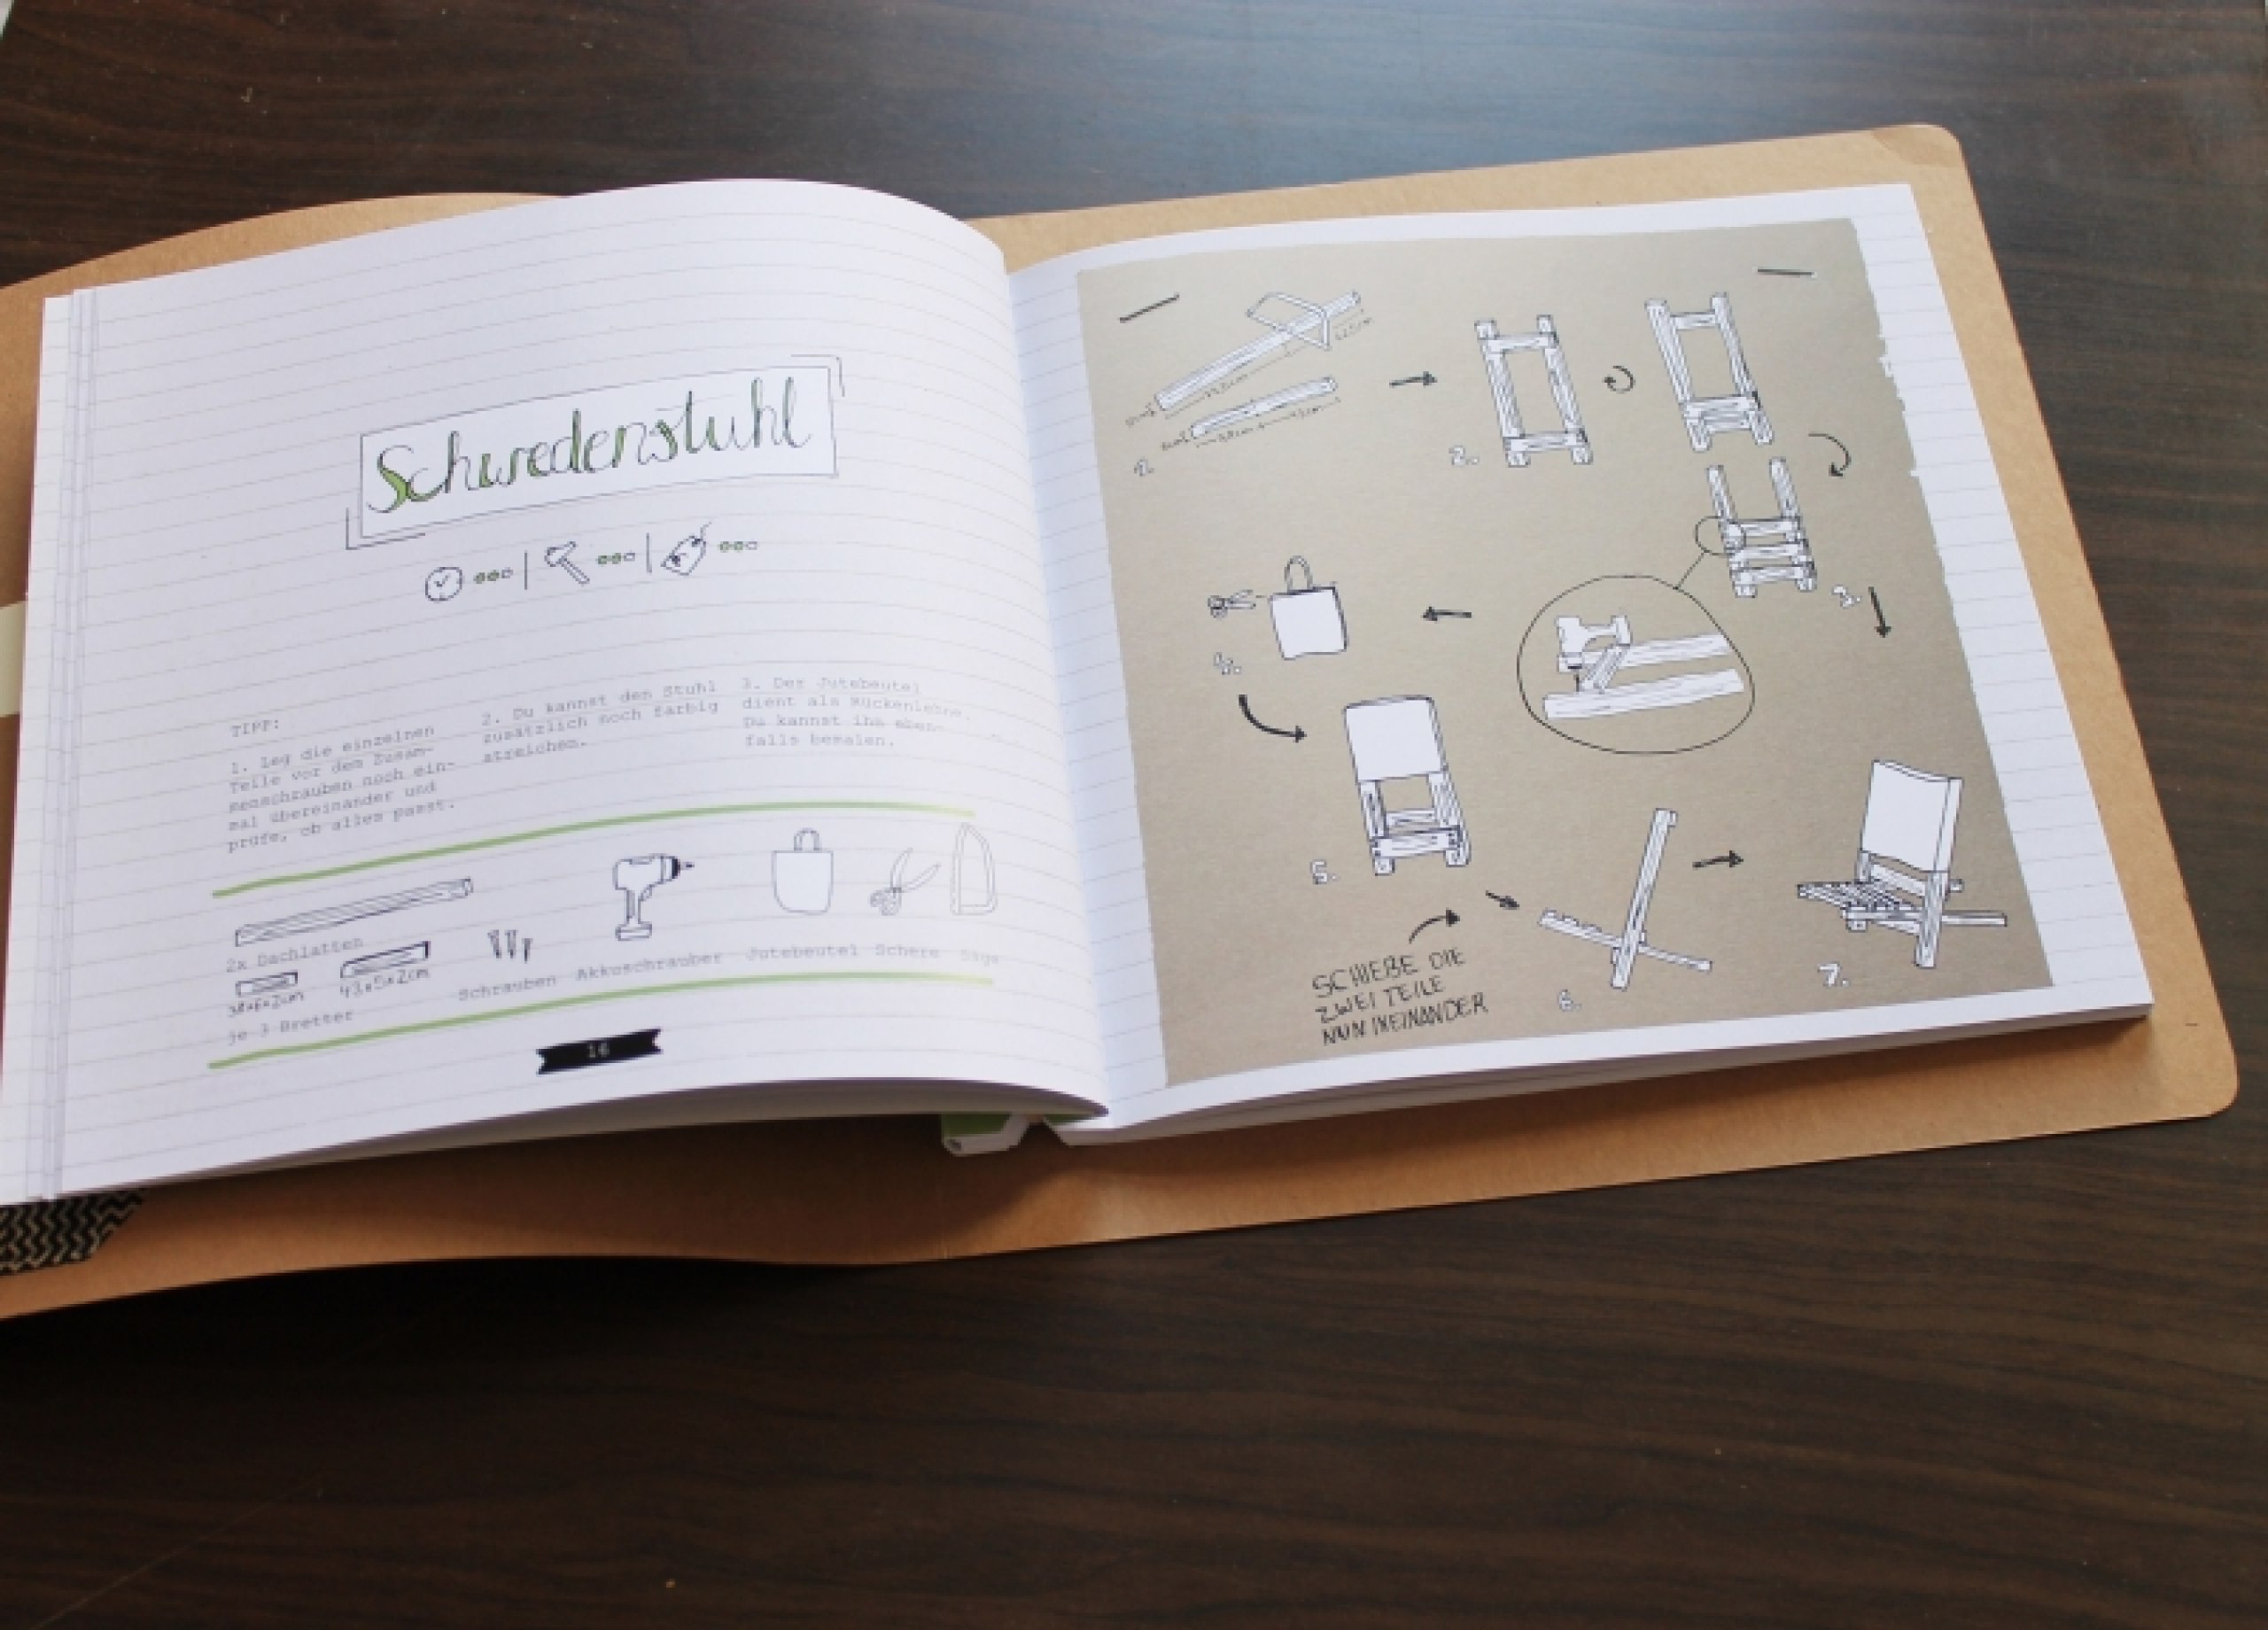 Schwedenstuhl
TIPP:
1. Leg die einzelnen
Teile vor dem Zusam-
menschrauben noch ein-
mal übereinander und
prüfe, ob alles passt.
2. Du kannst den Stuhl
zusätzlich noch farbig
streichen.
3. Der Jutebeutel
dient als Rückenlehne.
Du kannst ihn eben-
falls bemalen.
2x Dachlatten
38x6x2cm
43x5x2cm
je 3 Bretter
Schrauben
Akkuschrauber
Jutebeutel
Schere
Säge
16
1.
2.
3.
4.
5.
SCHIEBE DIE
ZWEI TEILE
NUN INEINANDER
6.
7.